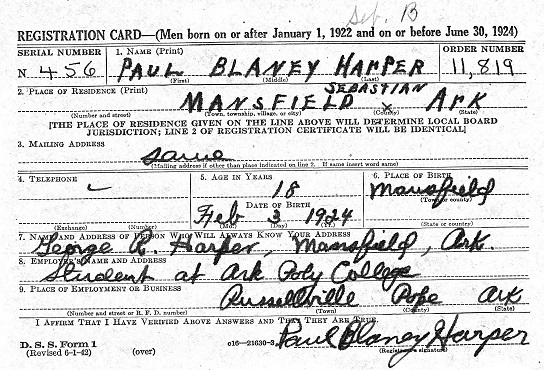 Seb. B
REGISTRATION CARD—(Men born on or after January 1, 1922 and on or before June 30, 1924)
SERIAL NUMBER 1. NAME (Print) ORDER NUMBER
N 456 PAUL BLANEY HARPER 11,819
(First) (Middle) (Last)
2. PLACE OF RESIDENCE (Print) SEBASTIAN
MANSFIELD x ARK
(Number and street) (Town, township, village, or city) (County) (State)
[THE PLACE OF RESIDENCE GIVEN ON THE LINE ABOVE WILL DETERMINE LOCAL BOARD
JURISDICTION; LINE 2 OF REGISTRATION CERTIFICATE WILL BE IDENTICAL]
3. MAILING ADDRESS
Same
[Mailing address if other than place indicated on line 2. If same insert word same]
4. TELEPHONE 5. AGE IN YEARS 6. PLACE OF BIRTH
18 Mansfield
(Town or county)
DATE OF BIRTH
Feb 3 1924
(Exchange) (Number) (Mo.) (Day) (Yr.) (State or country)
7. NAME AND ADDRESS OF PERSON WHO WILL ALWAYS KNOW YOUR ADDRESS
George R. Harper, Mansfield, Ark.
8. EMPLOYER'S NAME AND ADDRESS
Student at Ark Poly College
9. PLACE OF EMPLOYMENT OR BUSINESS
Russellville Pope Ark
(Number and street or R. F. D. number) (Town) (County) (State)
I AFFIRM THAT I HAVE VERIFIED ABOVE ANSWERS AND THAT THEY ARE TRUE.
D. S. S. Form 1 c16—21630-3 Paul Blaney Harper
(Revised 6-1-42) (over) (Registrant's signature)